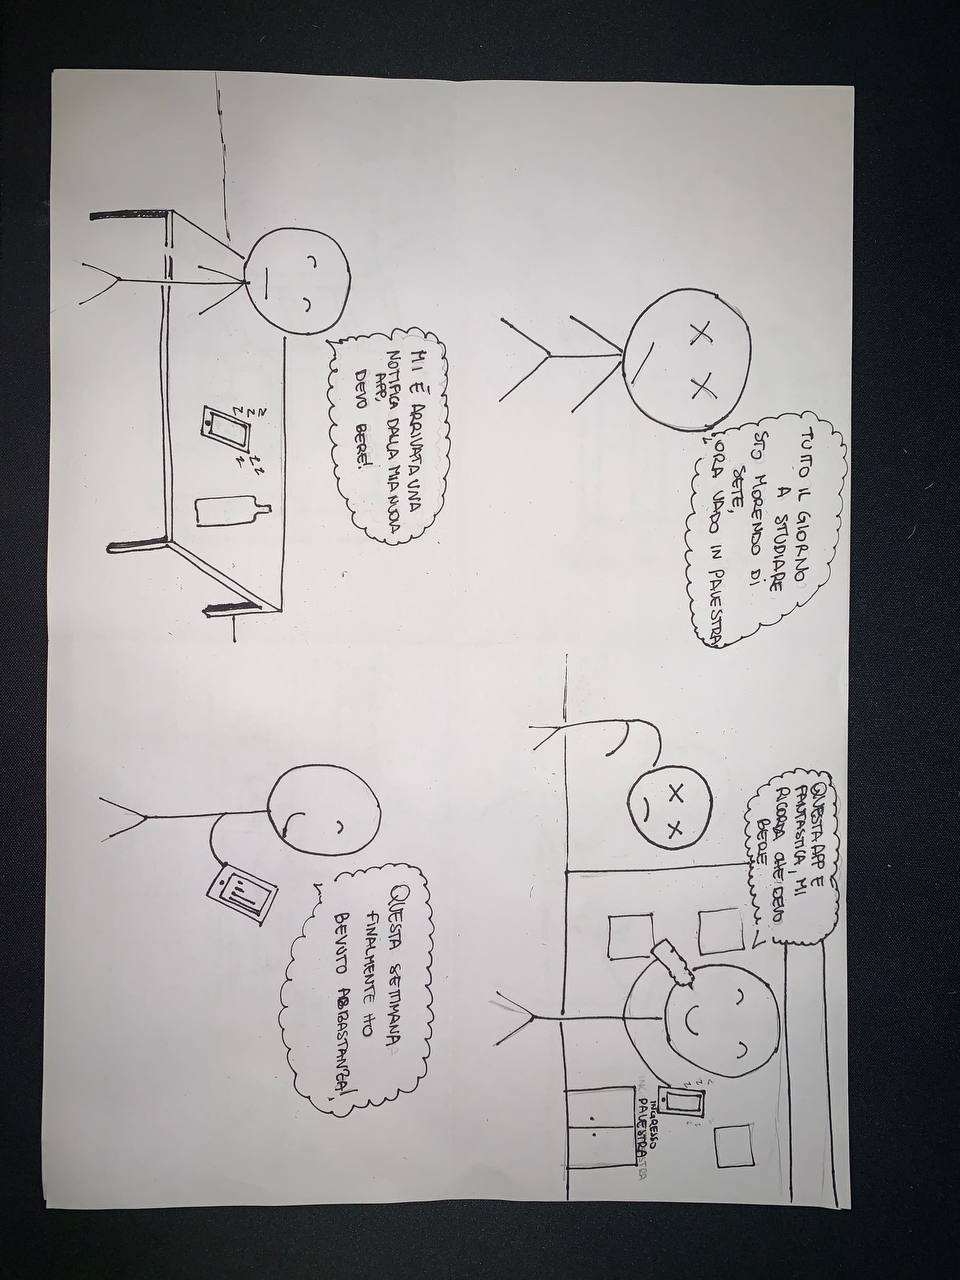 TUTTO IL GIORNO
A STUDIARE
STO MORENDO DI
SETE,
ORA VADO IN PALESTRA
QUESTA APP E
FANTASTICA, MI
RICORDA CHE DEVO
BERE
INGRESSO
PALESTRA
MI È ARRIVATA UNA
NOTIFICA DALLA MIA NUOVA
APP,
DEVO BERE!
QUESTA SETTIMANA
FINALMENTE HO
BEVUTO ABBASTANZA!